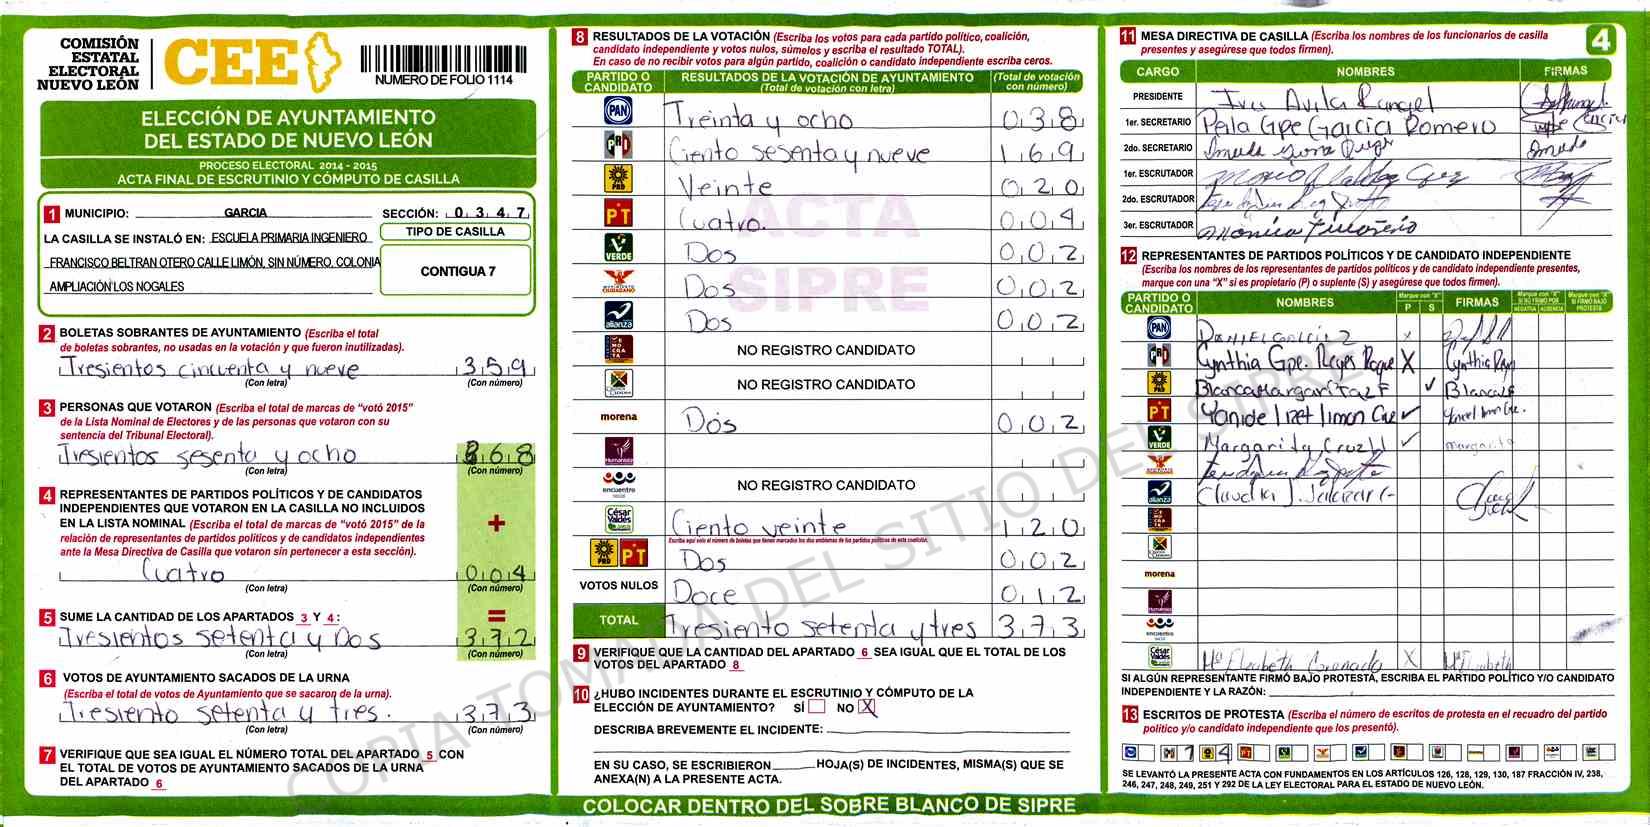 COMISIÓN
ESTATAL
ELECTORAL
NUEVO LEÓN
CEE
NUMERO DE FOLIO 1114
ELECCIÓN DE AYUNTAMIENTO
DEL ESTADO DE NUEVO LEÓN
PROCESO ELECTORAL 2014 - 2015
ACTA FINAL DE ESCRUTINIO Y CÓMPUTO DE CASILLA
1 MUNICIPIO: GARCIA SECCIÓN: 0 3 4 7
LA CASILLA SE INSTALÓ EN: ESCUELA PRIMARIA INGENIERO
FRANCISCO BELTRAN OTERO CALLE LIMÓN, SIN NÚMERO, COLONIA
AMPLIACIÓN LOS NOGALES
TIPO DE CASILLA
CONTIGUA 7
2 BOLETAS SOBRANTES DE AYUNTAMIENTO (Escriba el total
de boletas sobrantes, no usadas en la votación y que fueron inutilizadas).
Tresientos cincuenta y nueve 3 5 9
(Con letra) (Con número)
3 PERSONAS QUE VOTARON (Escriba el total de marcas de “votó 2015”
de la Lista Nominal de Electores y de las personas que votaron con su
sentencia del Tribunal Electoral).
Tresientos sesenta y ocho 3 6 8
(Con letra) (Con número)
4 REPRESENTANTES DE PARTIDOS POLÍTICOS Y DE CANDIDATOS
INDEPENDIENTES QUE VOTARON EN LA CASILLA NO INCLUIDOS
EN LA LISTA NOMINAL (Escriba el total de marcas de “votó 2015” de la
relación de representantes de partidos politicos y de candidatos independientes
ante la Mesa Directiva de Casilla que votaron sin pertenecer a esta sección).
+
Cuatro 0 0 4
(Con letra) (Con número)
5 SUME LA CANTIDAD DE LOS APARTADOS 3 Y 4: =
Tresientos setenta y Dos 3 7 2
(Con letra) (Con número)
6 VOTOS DE AYUNTAMIENTO SACADOS DE LA URNA
(Escriba el total de votos de Ayuntamiento que se sacaron de la urna).
Tresiento setenta y tres. 3 7 3
(Con letra) (Con número)
7 VERIFIQUE QUE SEA IGUAL EL NÚMERO TOTAL DEL APARTADO 5 CON
EL TOTAL DE VOTOS DE AYUNTAMIENTO SACADOS DE LA URNA
DEL APARTADO 6
8 RESULTADOS DE LA VOTACIÓN (Escriba los votos para cada partido político, coalición,
candidato independiente y votos nulos, súmelos y escriba el resultado TOTAL).
En caso de no recibir votos para algún partido, coalición o candidato independiente escriba ceros.
PARTIDO O CANDIDATO RESULTADOS DE LA VOTACIÓN DE AYUNTAMIENTO (Total de votación con letra) (Total de votación con número)
PAN Treinta y ocho 0 3 8
PRD Ciento sesenta y nueve 1 6 9
PRD Veinte 0 2 0
PT Cuatro. 0 0 4
VERDE Dos 0 0 2
MOVIMIENTO CIUDADANO Dos 0 0 2
alianza Dos 0 0 2
DEMOCRATA NO REGISTRO CANDIDATO
NO REGISTRO CANDIDATO
morena Dos 0 0 2
Humanista
encuentro social NO REGISTRO CANDIDATO
César Valdés Ciento veinte 1 2 0
Escriba aquí solo el número de boletas que tienen marcados los dos emblemas de los partidos políticos de esta coalición.
PRD PT Dos 0 0 2
VOTOS NULOS Doce 0 1 2
TOTAL Tresiento setenta y tres 3 7 3
ACTA
SIPRE
9 VERIFIQUE QUE LA CANTIDAD DEL APARTADO 6 SEA IGUAL QUE EL TOTAL DE LOS
VOTOS DEL APARTADO 8
10 ¿HUBO INCIDENTES DURANTE EL ESCRUTINIO Y CÓMPUTO DE LA
ELECCIÓN DE AYUNTAMIENTO? SÍ NO X
DESCRIBA BREVEMENTE EL INCIDENTE:
EN SU CASO, SE ESCRIBIERON HOJA(S) DE INCIDENTES, MISMA(S) QUE SE
ANEXA(N) A LA PRESENTE ACTA.
COLOCAR DENTRO DEL SOBRE BLANCO DE SIPRE
COPIA TOMADA DEL SITIO DEL SIPRE
11 MESA DIRECTIVA DE CASILLA (Escriba los nombres de los funcionarios de casilla
presentes y asegúrese que todos firmen).
4
CARGO NOMBRES FIRMAS
PRESIDENTE Avila Rangel
1er. SECRETARIO Perla Gpe Garcia Romero
2do. SECRETARIO
1er. ESCRUTADOR
2do. ESCRUTADOR
3er. ESCRUTADOR Mónica
12 REPRESENTANTES DE PARTIDOS POLÍTICOS Y DE CANDIDATO INDEPENDIENTE
(Escriba los nombres de los representantes de partidos políticos y de candidato independiente presentes,
marque con una “X” si es propietario (P) o suplente (S) y asegúrese que todos firmen).
PARTIDO O CANDIDATO NOMBRES Marque con "X" P S FIRMAS Marque con "X" SI NO FIRMÓ POR NEGATIVA AUSENCIA Marque con "X" SI FIRMÓ BAJO PROTESTA
PAN DANIEL x
PRD Cynthia Gpe. Reyes Roque X Cynthia
PRD Blanca Margarita ✓ Blanca
PT Limon ✓
VERDE Margarita Cruz ✓ margarita
alianza Claudia J. Salazar G
morena
Humanista
encuentro social
César Valdés Ma Elizabeth Granada X Ma Elizabeth
SI ALGÚN REPRESENTANTE FIRMÓ BAJO PROTESTA, ESCRIBA EL PARTIDO POLÍTICO Y/O CANDIDATO
INDEPENDIENTE Y LA RAZÓN:
13 ESCRITOS DE PROTESTA (Escriba el número de escritos de protesta en el recuadro del partido
político y/o candidato independiente que los presentó).
SE LEVANTÓ LA PRESENTE ACTA CON FUNDAMENTOS EN LOS ARTÍCULOS 126, 128, 129, 130, 187 FRACCIÓN IV, 238,
246, 247, 248, 249, 251 Y 292 DE LA LEY ELECTORAL PARA EL ESTADO DE NUEVO LEÓN.